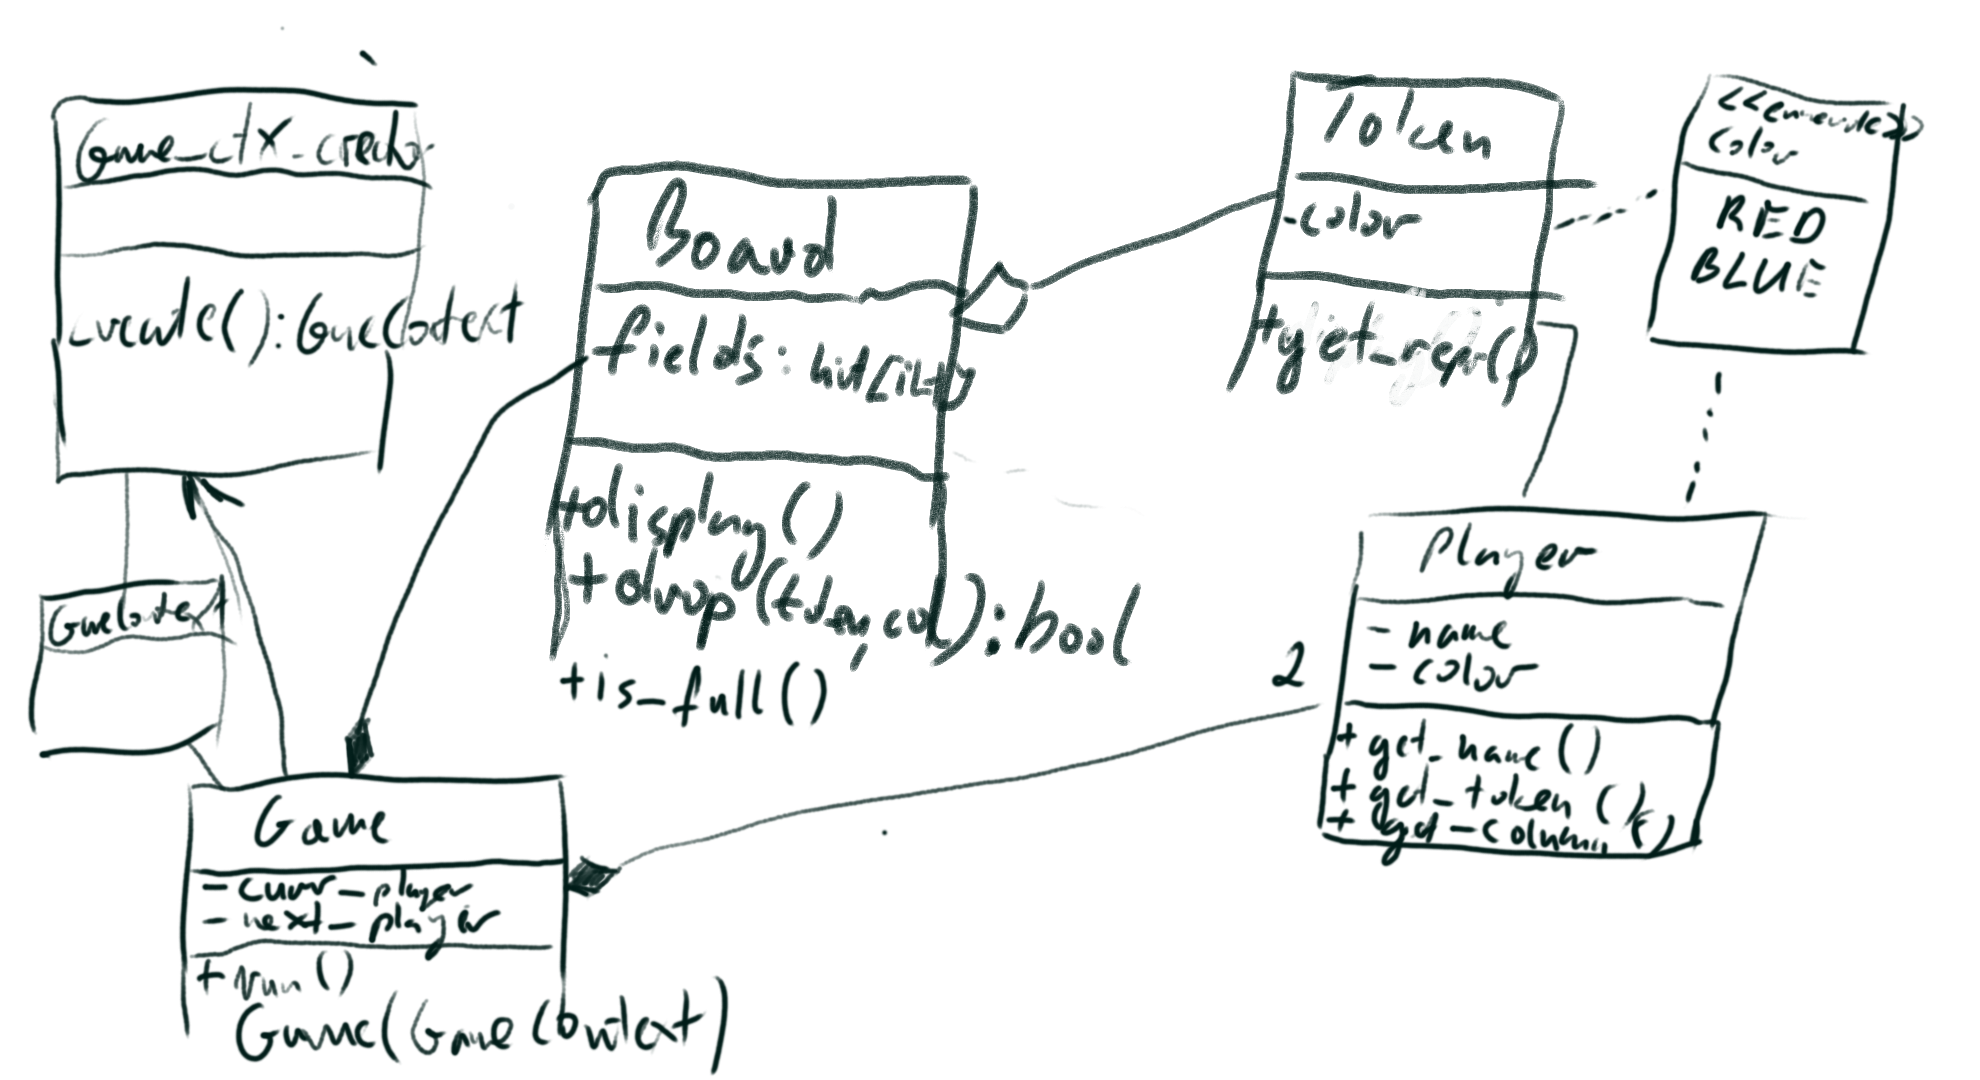 Game_ctx_creator
create():GameContext
GameContext
Board
fields:
+display()
+drop(token,col):bool
+is_full()
Token
-color
+get_repr()
color
RED
BLUE
Player
- name
- color
2
+ get_name()
+ get_token()
+ get_column()
Game
- curr_player
- next_player
+ run()
Game(GameContext)